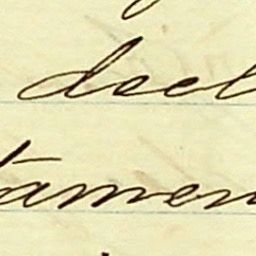 decl
tamen